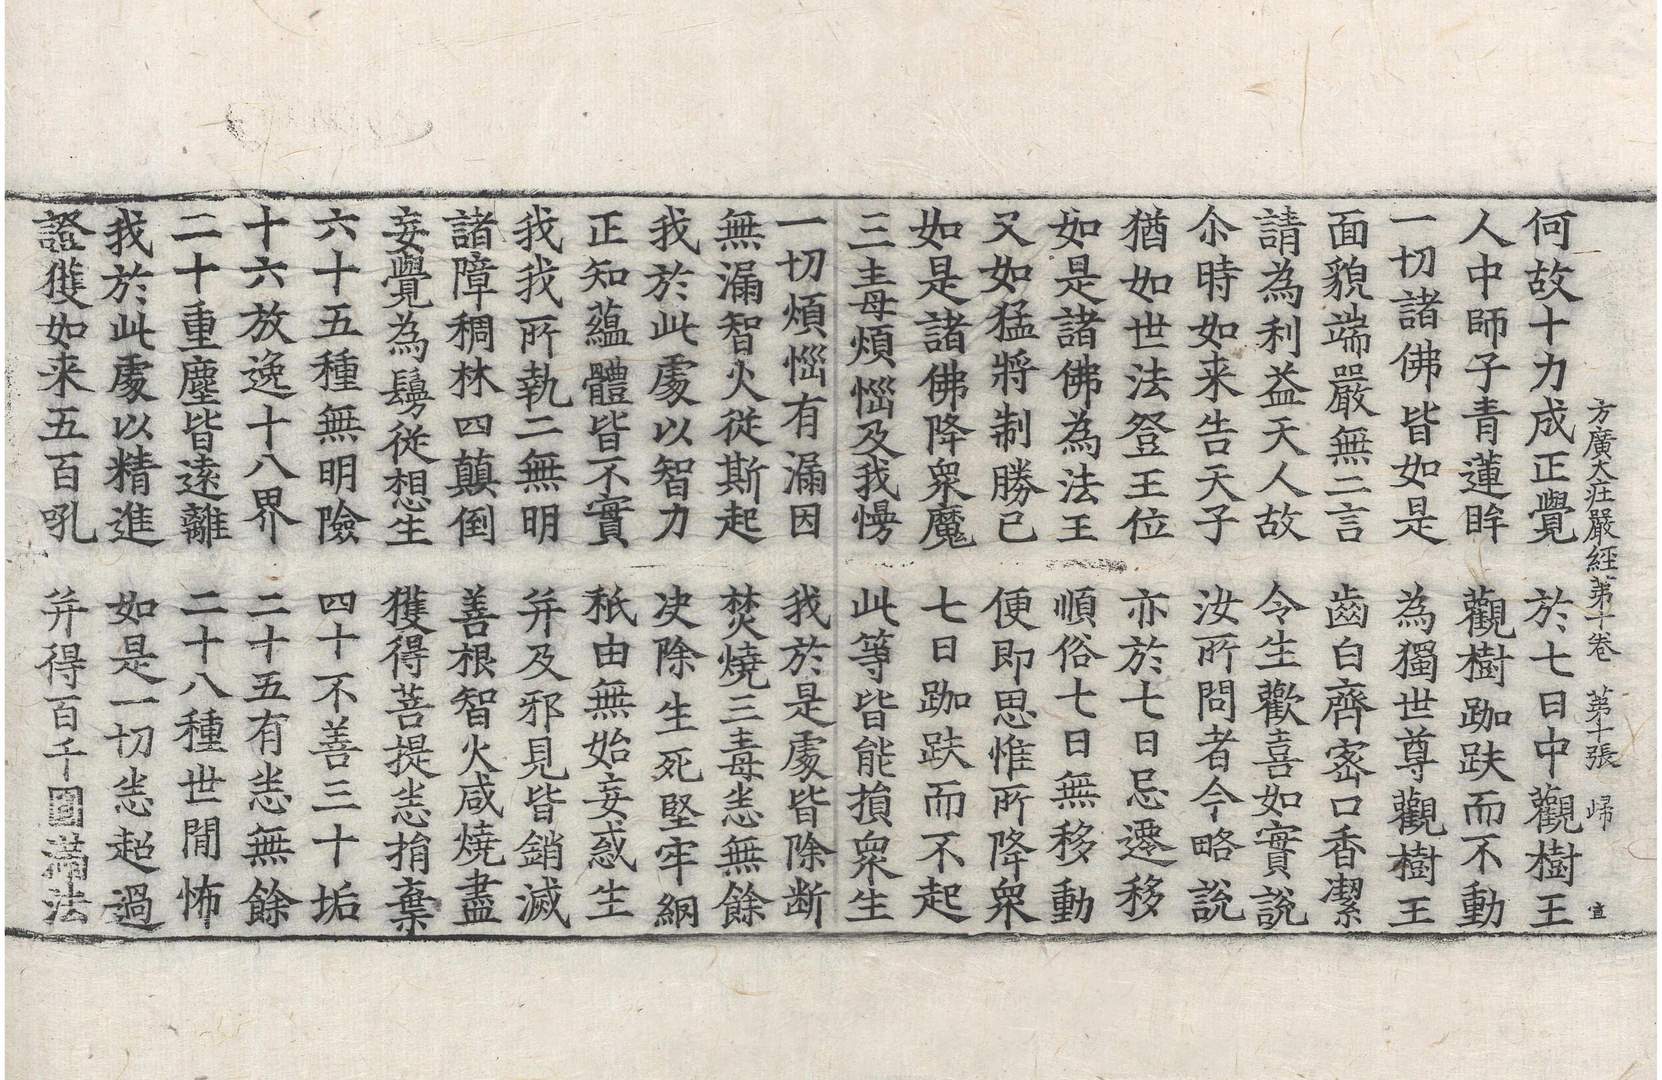 方廣大莊嚴經第十卷 第十張 歸 宜
何故十力成正覺 於七日中觀樹王
人中師子青蓮眸 觀樹跏趺而不動
一切諸佛皆如是 為獨世尊觀樹王
面貌端嚴無二言 齒白齊密口香潔
請為利益天人故 令生歡喜如實說
尒時如来告天子 汝所問者今略說
猶如世法登王位 亦於七日忌遷移
如是諸佛為法王 順俗七日無移動
又如猛將制勝已 便即思惟所降衆
如是諸佛降衆魔 七日跏趺而不起
三毒煩惱及我慢 此等皆能損衆生
一切煩惱有漏因 我於是處皆除断
無漏智火從斯起 焚燒三毒悉無餘
我於此處以智力 决除生死堅牢網
正知蘊體皆不實 秖由無始妄惑生
我我所執二無明 并及邪見皆銷滅
諸障稠林四顛倒 善根智火咸燒盡
妄覺為鬘從想生 獲得菩提悉捐棄
六十五種無明險 四十不善三十垢
十六放逸十八界 二十五有悉無餘
二十重塵皆遠離 二十八種世間怖
我於此處以精進 如是一切悉超過
證獲如来五百吼 并得百千圓滿法